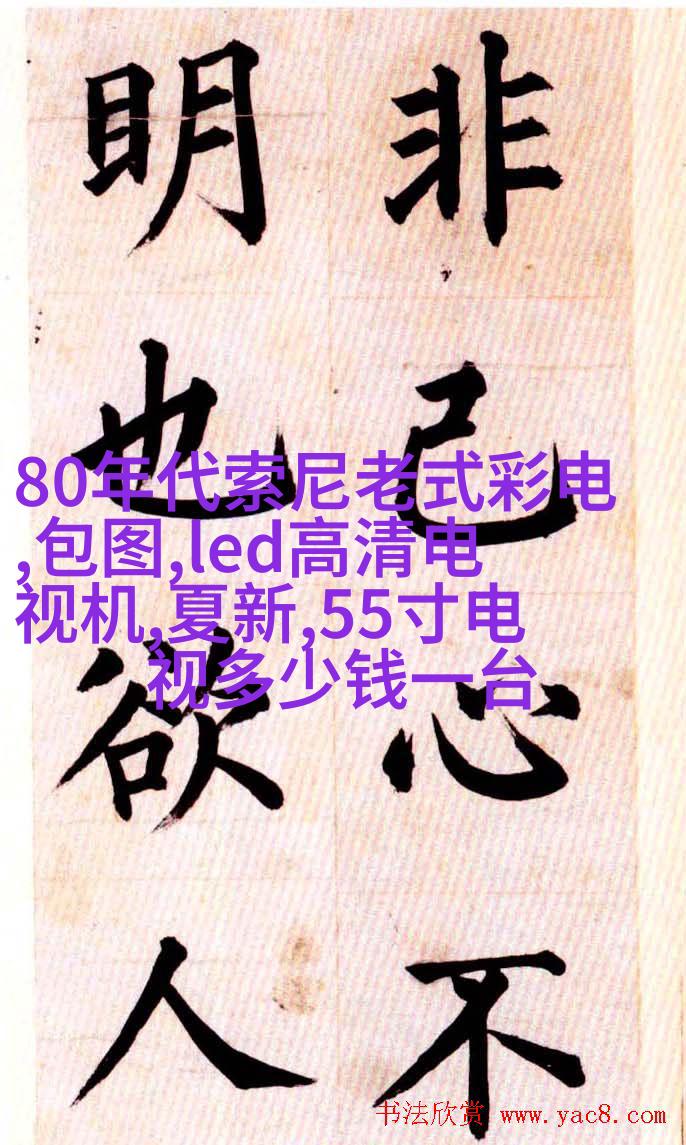 非己心不
明也欲人
80年代索尼老式彩电
,包图,led高清电
视机,夏新,55寸电
视多少钱一台
书法欣赏 www.yac8.com